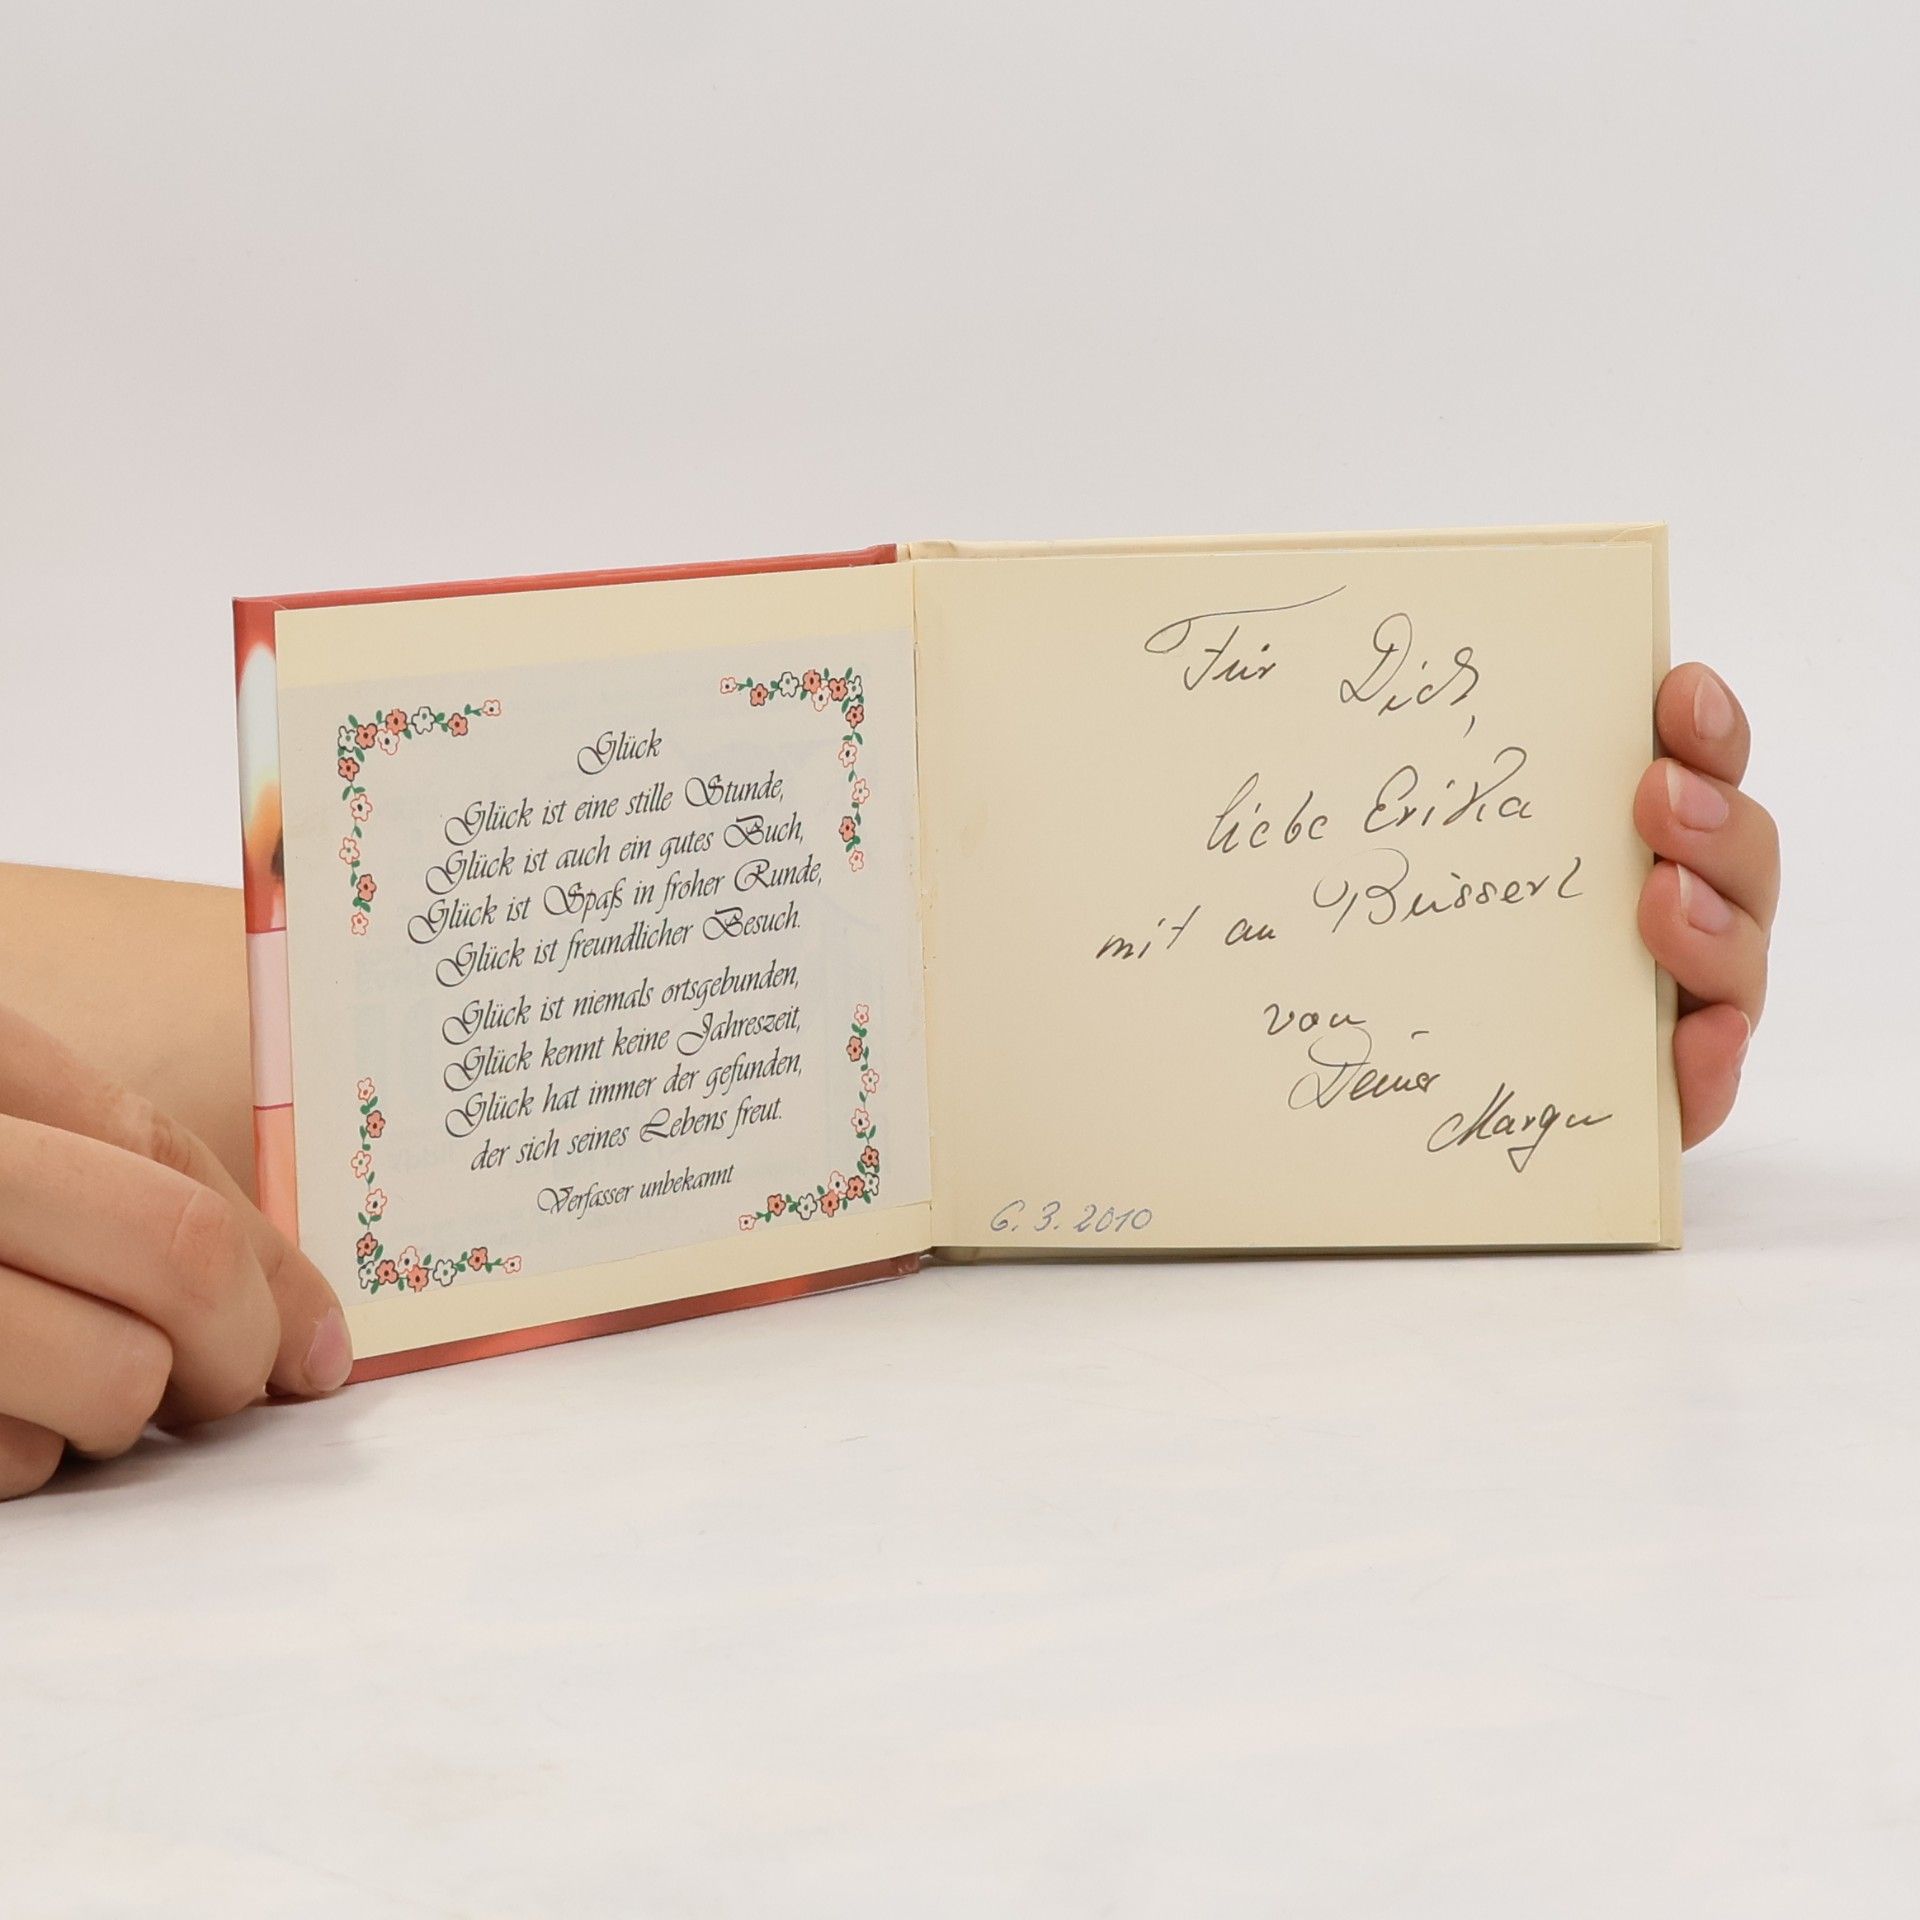 Glück
Glück ist eine stille Stunde,
Glück ist auch ein gutes Buch,
Glück ist Spaß in froher Runde,
Glück ist freundlicher Besuch.
Glück ist niemals ortsgebunden,
Glück kennt keine Jahreszeit,
Glück hat immer der gefunden,
der sich seines Lebens freut.
Verfasser unbekannt
Für Dich,
liebe Erika
mit an Busserl
von
Deiner
6. 3. 2010